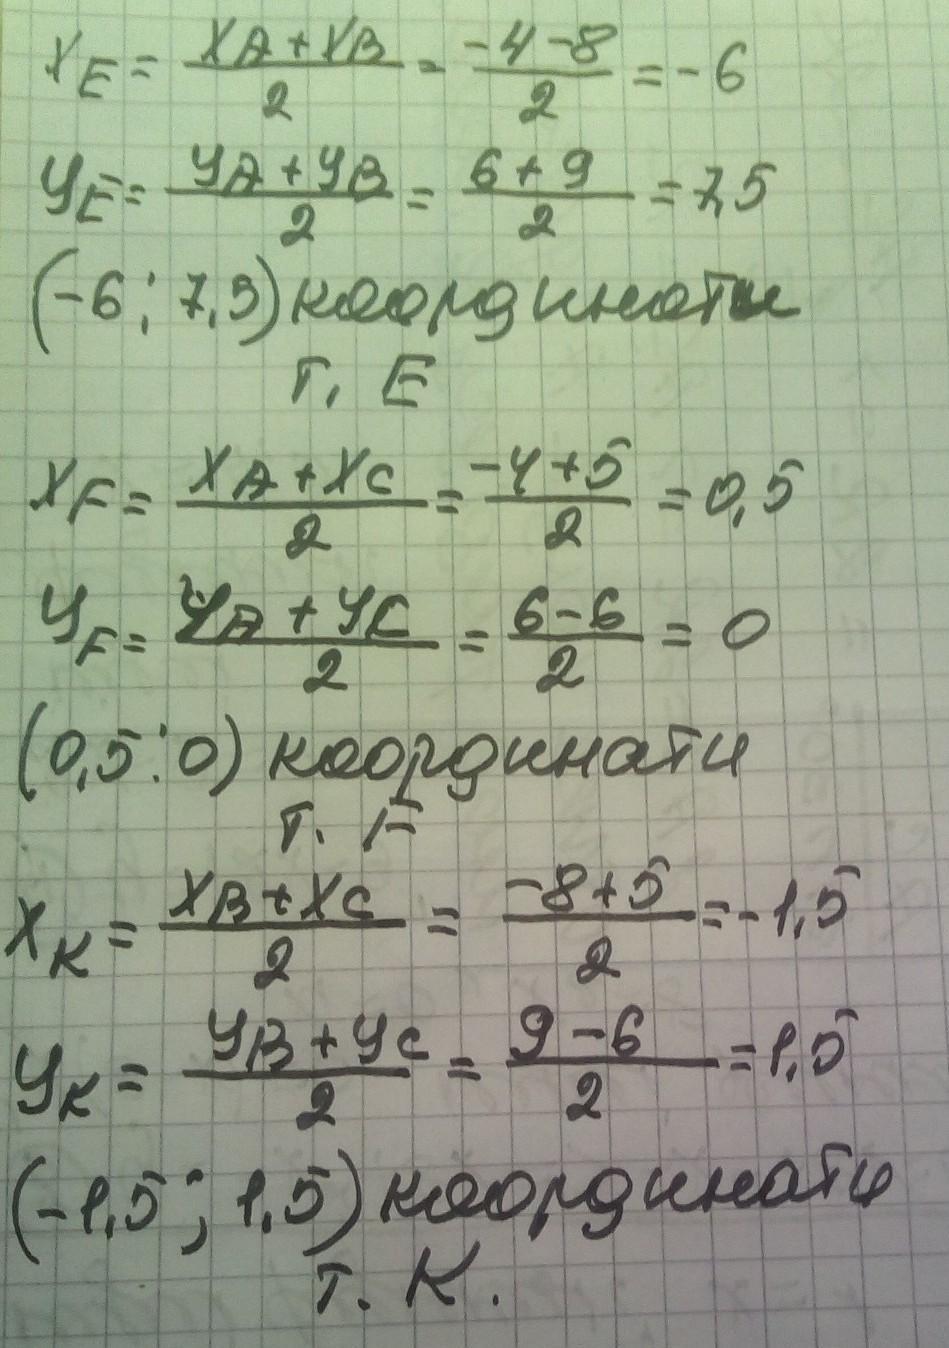 XE = XA + XB / 2 = -4 -8 / 2 = -6
УE = УA + УB / 2 = 6 + 9 / 2 = 7,5
(-6 ; 7,5) координати
т. E
XF = XA + XC / 2 = -4 + 5 / 2 = 0,5
УF = УA + УC / 2 = 6 - 6 / 2 = 0
(0,5 ; 0) координати
т. F
XK = XB + XC / 2 = -8 + 5 / 2 = -1,5
УK = УB + УC / 2 = 9 - 6 / 2 = 1,5
(-1,5 ; 1,5) координати
т. K.